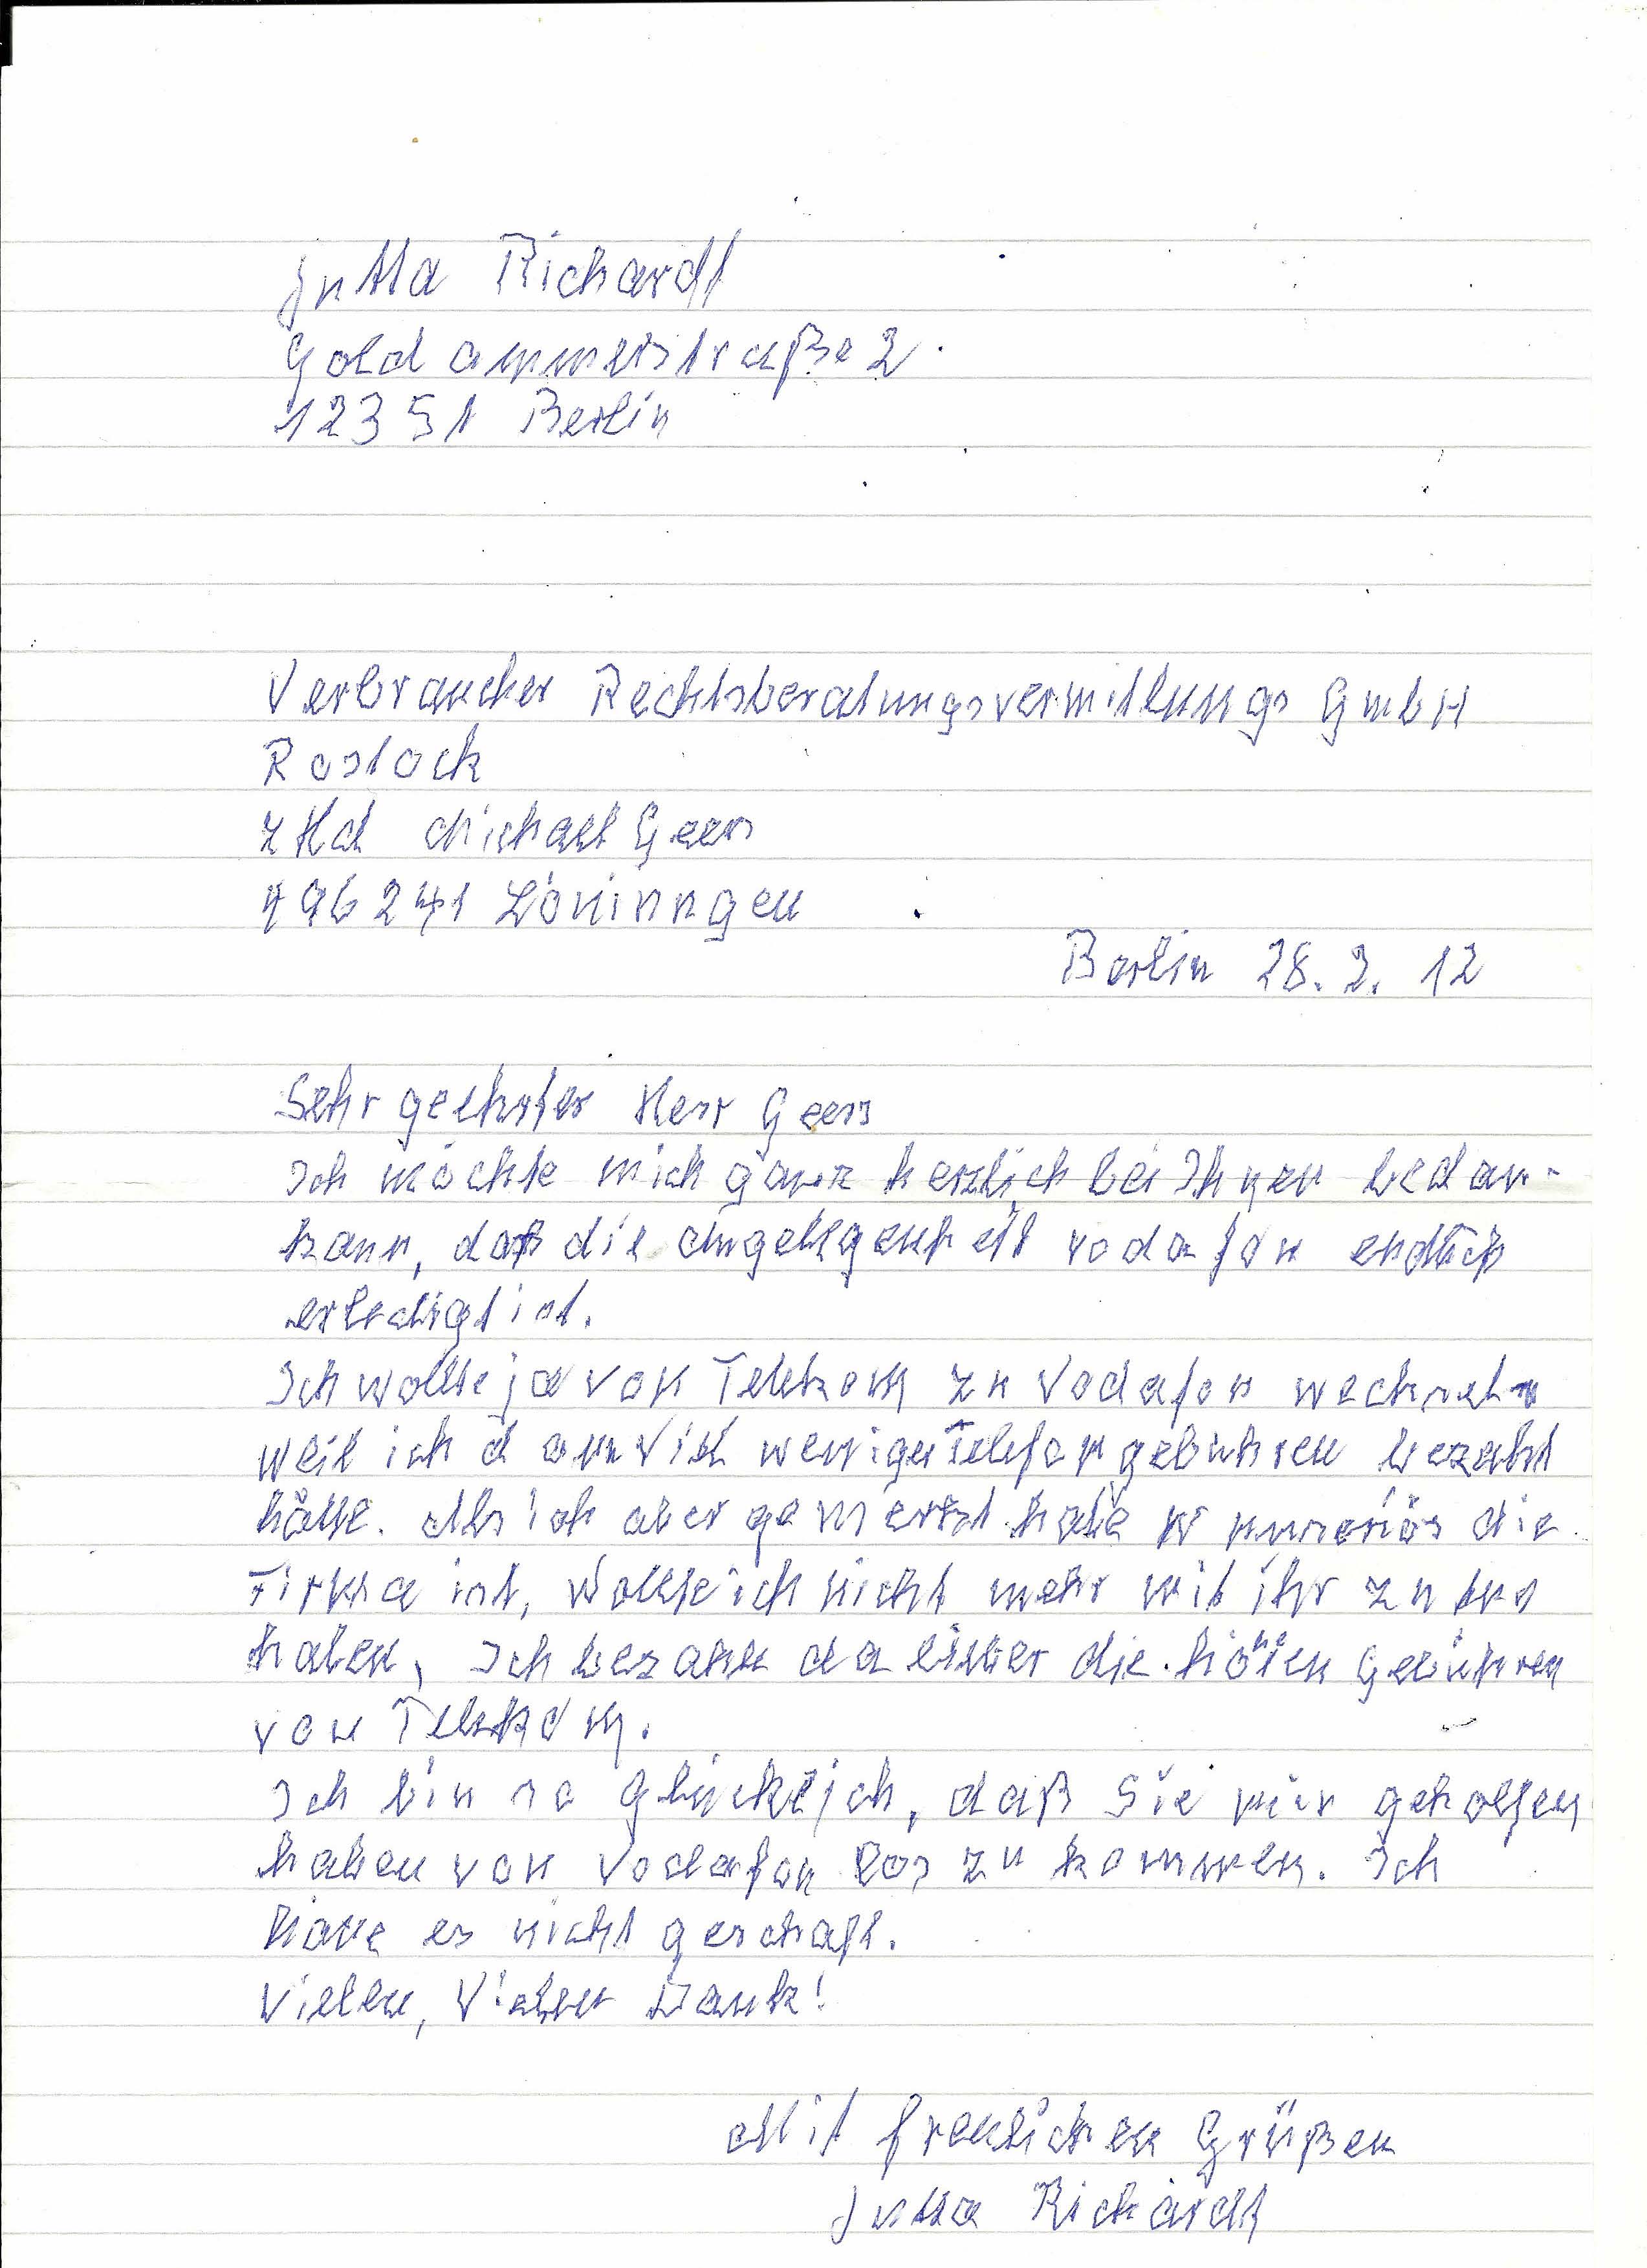 Jutta Richardt
Goldammerstraße 2
12351 Berlin
Verbraucher Rechtsberatungsvermittlungs GmbH
Rostock
zHd Michael Geers
Löninngen
Berlin 28. 2. 12
Sehr geehrter Herr Geers
Ich möchte mich ganz herzlich bei Ihnen bedan-
kann, daß die Angelegenheit vodafon endlich
erledigt ist.
Ich wollte ja von Telekom zu Vodafon wechseln
weil ich dann viel weniger Telefongebühren bezahlt
hätte. Als ich aber gemerkt habe w unseriös die
Firma ist, wollte ich nicht mehr mit ihr zu tun
haben, Ich bezahle da lieber die höhen Gebühren
von Telekom.
Ich bin so glücklich, daß Sie mir geholfen
haben von Vodafon los zu kommen. Ich
habe es nicht geschaft.
Vielen, Vielen Dank!
Mit freulichen Grüßen
Jutta Richardt